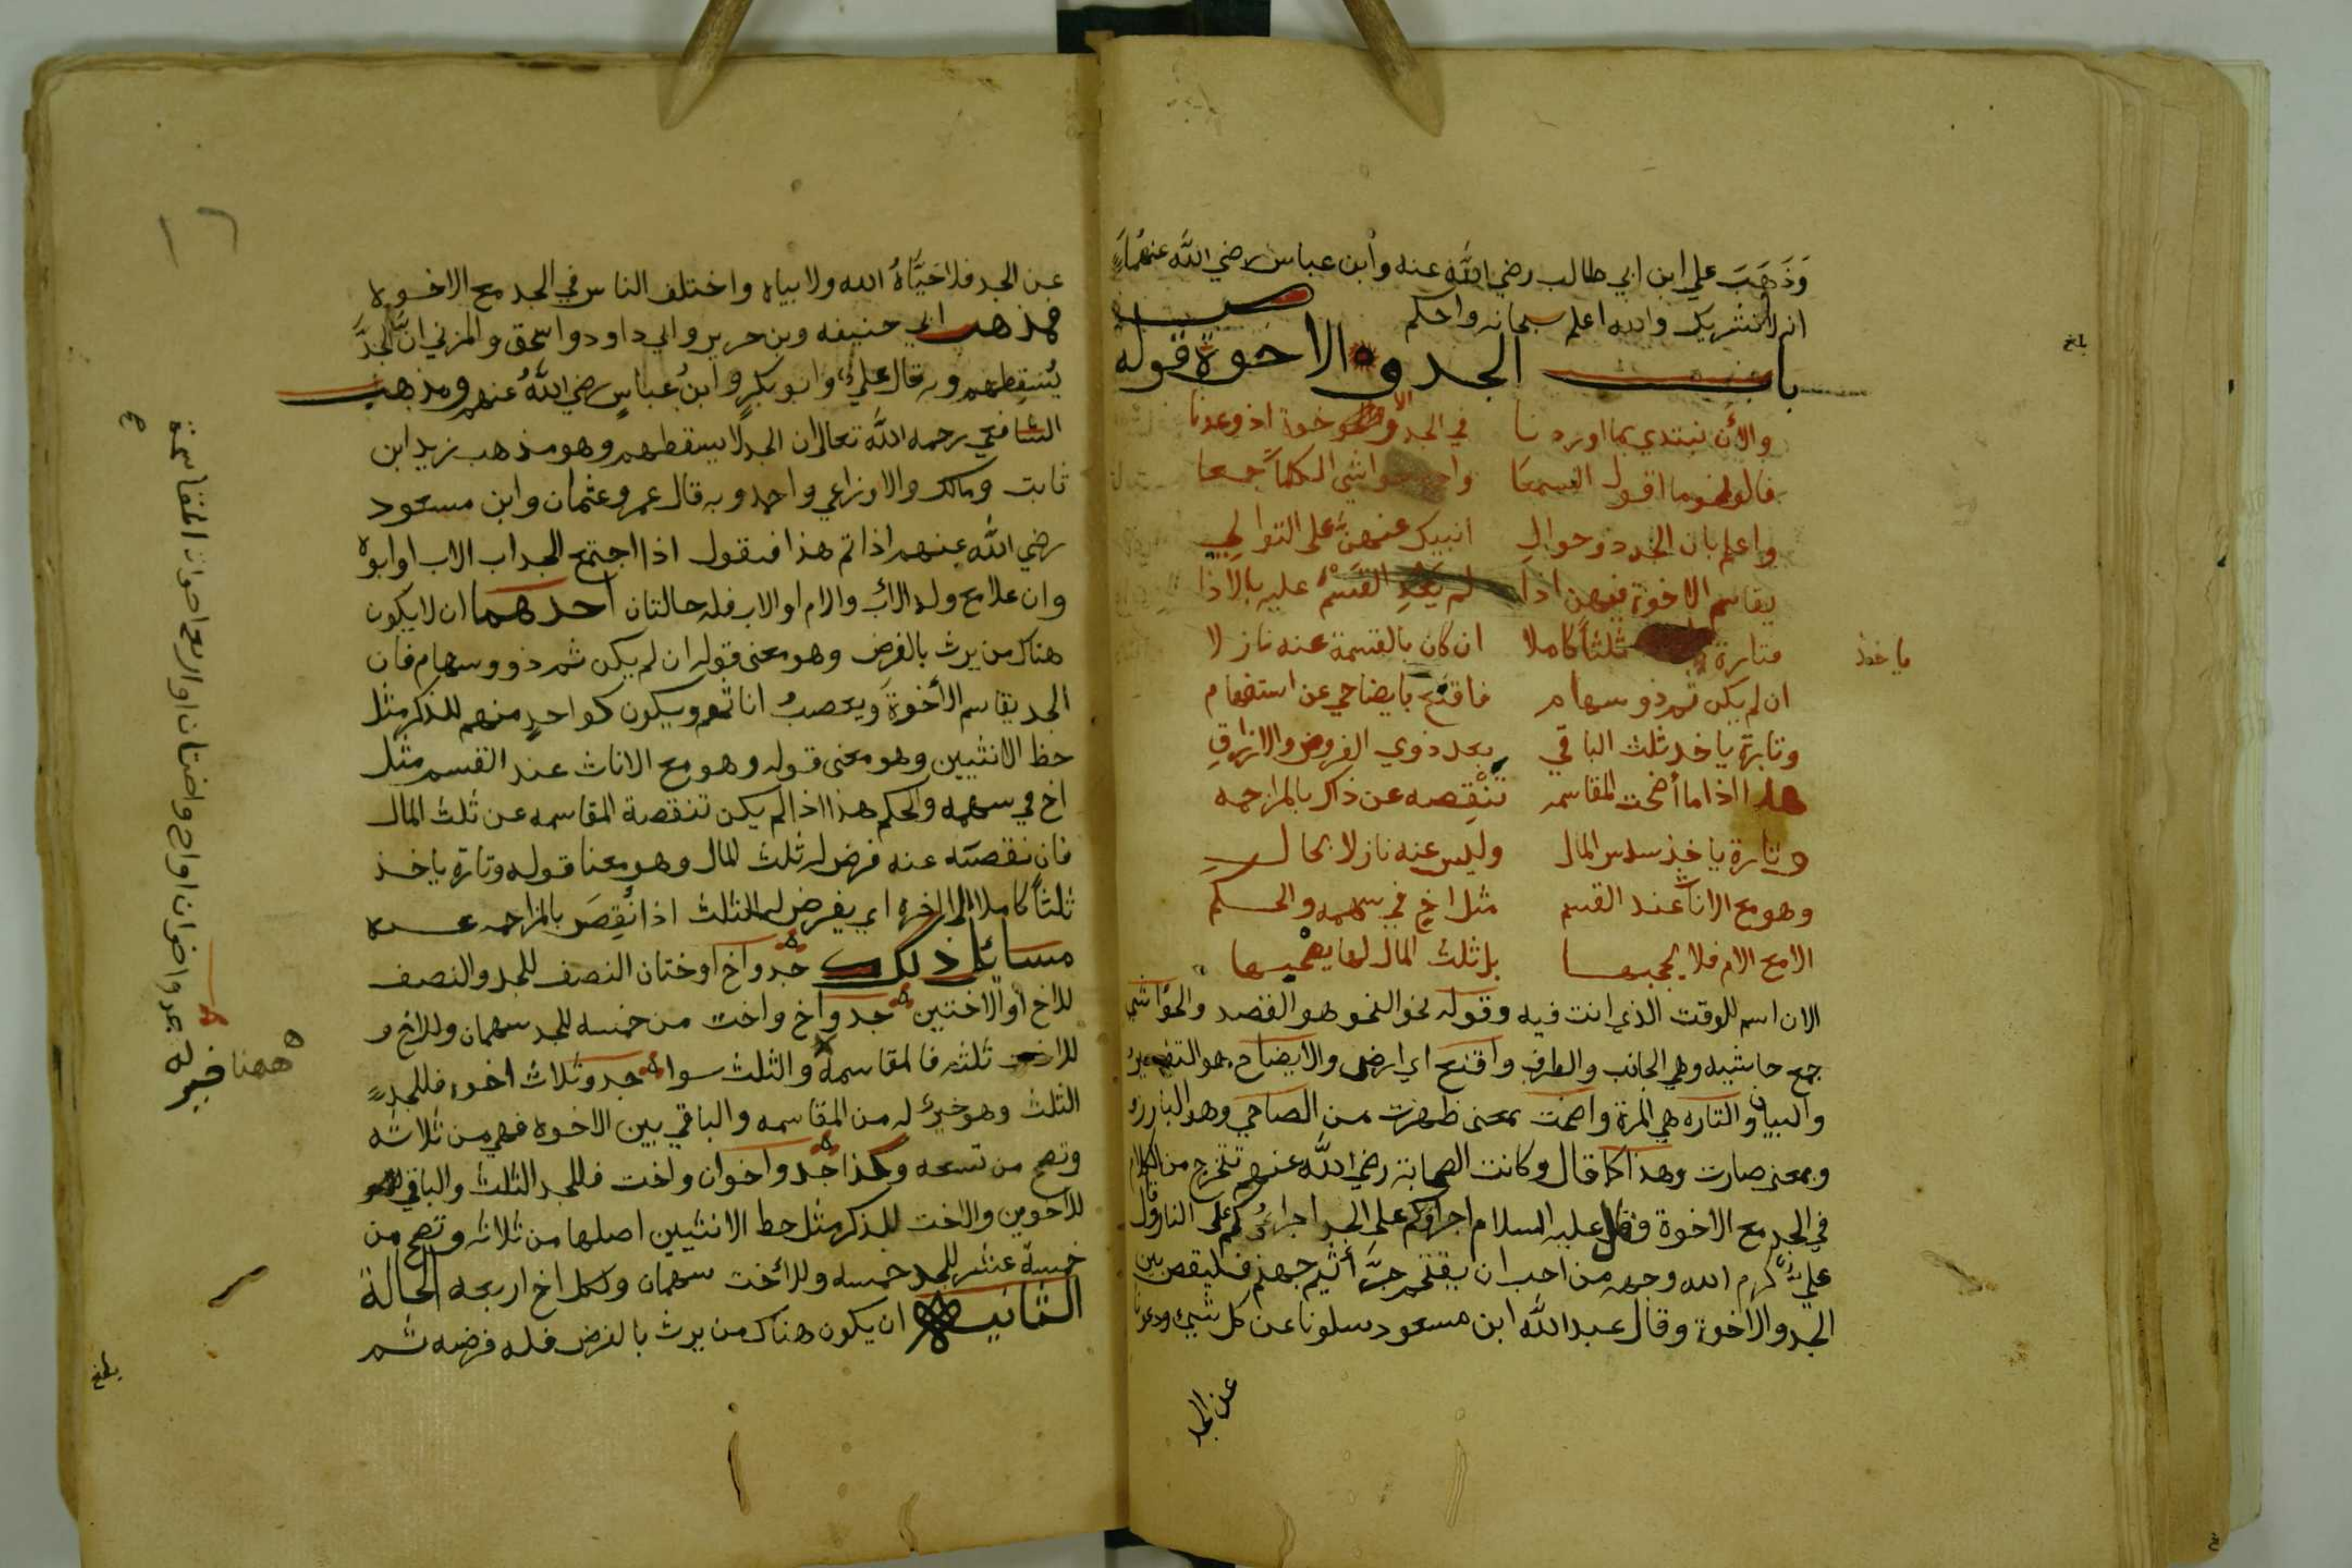 وَذَهَبَ علي ابن ابي طالب رضي اللَّه عنه وأبن عباس رضي اللَّه عنهما
انه لا تشريك والله اعلم سبحانه واحكم
باب الجد والاخوة قوله
والأن نبتدي بما اوردنا في الجد والاخوة اذ وعدنا
فالق نحو ما اقول السمعا واجمع حواشي الكلمات جمعا
واعلم بان الجد ذو حوالِ انبيك عنهن على التوالي
يقاسم الاخوة فيهن اذا لم يَعُدِ القَسْمُ عليه بالاذا
فتارة ثلثاً كاملا ان كان بالقسمة عنه نازلا
ياخذ
ان لم يكن ثم ذو سهام فاقنع بايضاحي عن استفهام
وتارة ياخذ ثلث الباقي بعد ذوي الفروض والارزاقِ
هذا اذا ما أضحت المقاسمه تنْقِصه عن ذاك بالمزاحمه
وتارة ياخذ سدس المال وليس عنه نازلا بحال
وهو مع الاناث عند القسم مثل اخٍ في سهمه والحكم
الا مع الام فلا يحجبها بل ثلث المال لها يصحبها
الان اسم للوقت الذي انت فيه وقوله نحو النحو هو القصد والحواشي
جمع حاشيه وهي الجانب والطرف واقنع اي ارض والايضاح هو التفسير
والبيان والتاره هي المرة واضحت بمعنى ظهرت من الضاحي وهو البارزه
وبمعنى صارت وهذا كما قال وكانت الصحابة رضي اللَّه عنهم تتحرج من الكلام
في الجد مع الاخوة وقال عليه السلام اجراؤكم على الجد اجراؤكم على النار وقال
عليٌّ كرم الله وجهه من احب ان يقتحم جراثيم جهنم فليقض بين
الجد والاخوة وقال عبد اللَّه ابن مسعود سلونا عن كل شيء ودعونا
عن الجد
عن الجد فلا حَيَّاهُ الله ولا بياه واختلف الناس في الجد مع الاخوه
فمذهب ابي حنيفه وبن جرير وابي داود واسحق والمزني ان الجدَّ
يُسْقِطهم وبه قال عليٌّ وابو بكرٍ وابنُ عباسٍ رضي اللَّهُ عنهم ومذهب
الشافعي رحمه اللَّه تعالى ان الجد لا يسقطهم وهو مذهب زيد ابن
ثابت ومالك والاوزاعي واحمد وبه قال عمر وعثمان وابن مسعود
رضي اللَّه عنهم اذا تم هذا فنقول اذا اجتمع الجد اب الاب او ابوه
وان علا مع ولد الاب والام او الاب فله حالتان أحدهما ان لا يكون
هناك من يرث بالفرض وهو معنى قوله ان لم يكن ثم ذوو سهام فان
الجد يقاسم الأخوةَ ويعصبُ اناثهم ويكون كواحدٍ منهم للذكر مثل
حظ الانثيين وهو معنى قوله وهو مع الاناث عند القسم مثل
اخ في سهمه والحكم هذا اذا لم يكن تنقصة المقاسمه عن ثلث المال
فان نقصته عنه فرض له ثلث المال وهو معنا قوله وتارة ياخذ
ثلثاً كاملا الى اخره اي يفرض له الثلث اذا نُقِصَ بالمزاحمه عنه
مسائل ذلك جد واخ او ختان النصف للجد والنصف
للاخ او الاختين جد واخ واخت من خمسه للجد سهمان وللاخ و
للاخت ثلثه فالمقاسمة والثلث سوا جد وثلاث اخوه فللجد
الثلث وهو خيرٌ له من المقاسمه والباقي بين الاخوه فهي من ثلاثه
وتصح من تسعه وكذا جد واخوان واخت فللجد الثلث والباقي
للاخوين والاخت للذكر مثل حظ الانثيين اصلها من ثلاثه وتصح من
خمسة عشر للجد خمسه وللأخت سهمان ولكل اخ اربعه الحالة
الثانيه ان يكون هناك من يرث بالفرض فله فرضه ثم
جد واخوان او اخ واختان او اربع اخوات المقاسمة
ههنا خير له
بلغ
بلغ